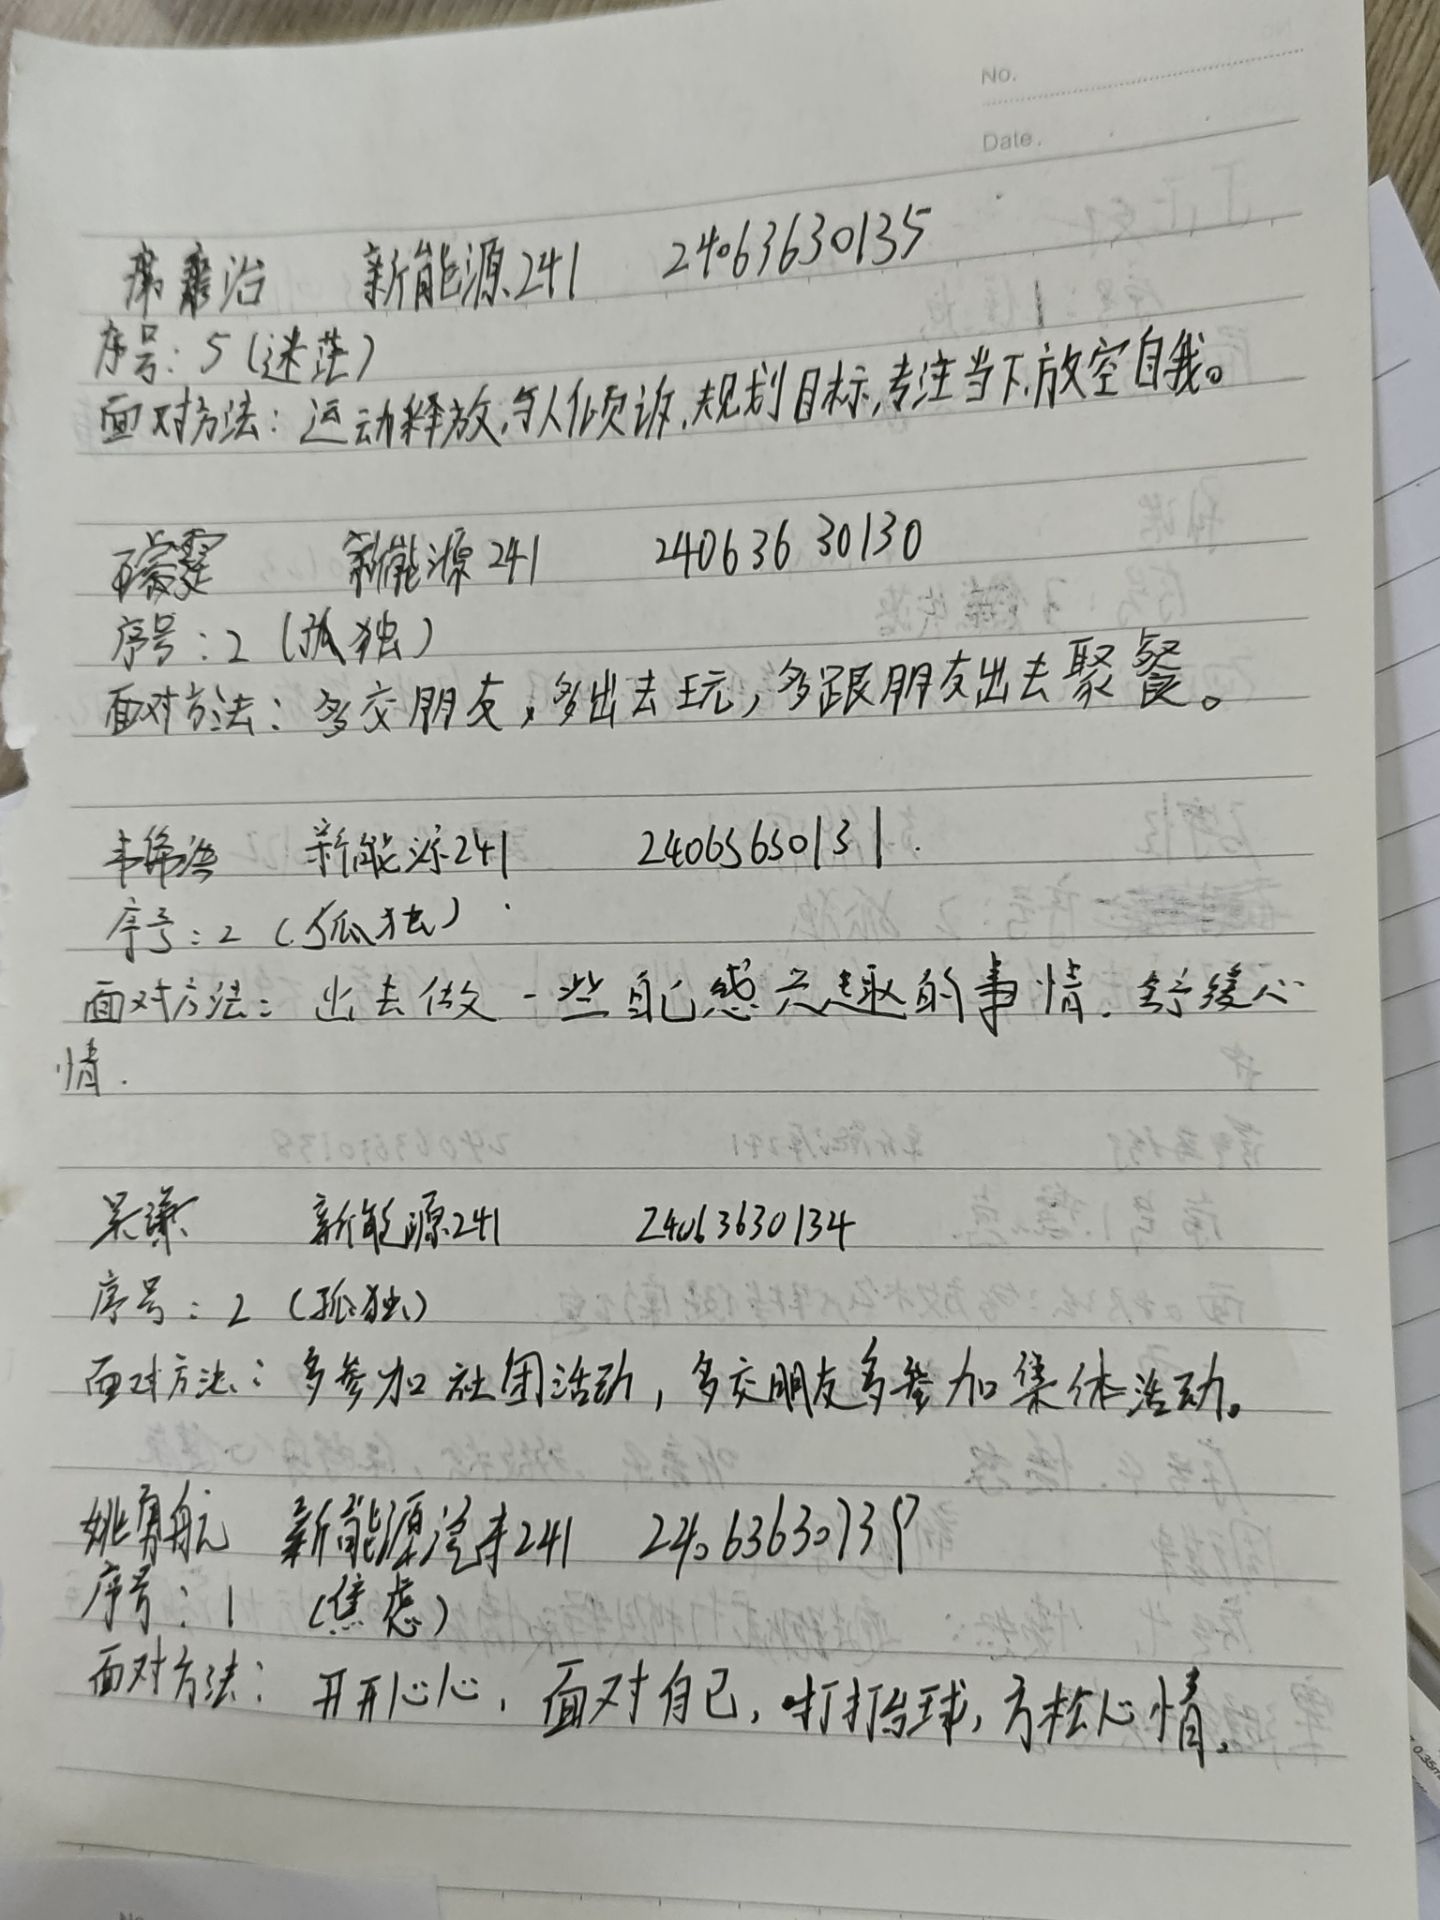 No.
Date.
治 新能源241 24063630135
序号:5(迷茫)
面对方法:运动释放,与人倾诉,规划目标,专注当下,放空自我。
新能源241 24063630130
序号:2(孤独)
面对方法:多交朋友,多出去玩,多跟朋友出去聚餐。
韦 新能源241 24063630131.
序号:2(孤独)
面对方法:出去做一些自己感兴趣的事情.舒缓心
情.
吴谦 新能源241 24063630134
序号:2(孤独)
面对方法:多参加社团活动,多交朋友多参加集体活动。
姚勇航 新能源汽车241 24063630139
序号:1 (焦虑)
面对方法:开开心心,面对自己,打打台球,方松心情。